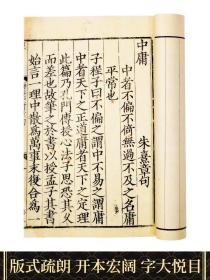 中庸
朱熹章句
中者不偏不倚無過不及之名庸
平常也
子程子曰不偏之謂中不易之謂庸
中者天下之正道庸者天下之定理
此篇乃孔門傳授心法子思恐其久
而差也故筆之於書以授孟子其書
始言一理中散為萬事末復合為一
版式疏朗 开本宏阔 字大悦目